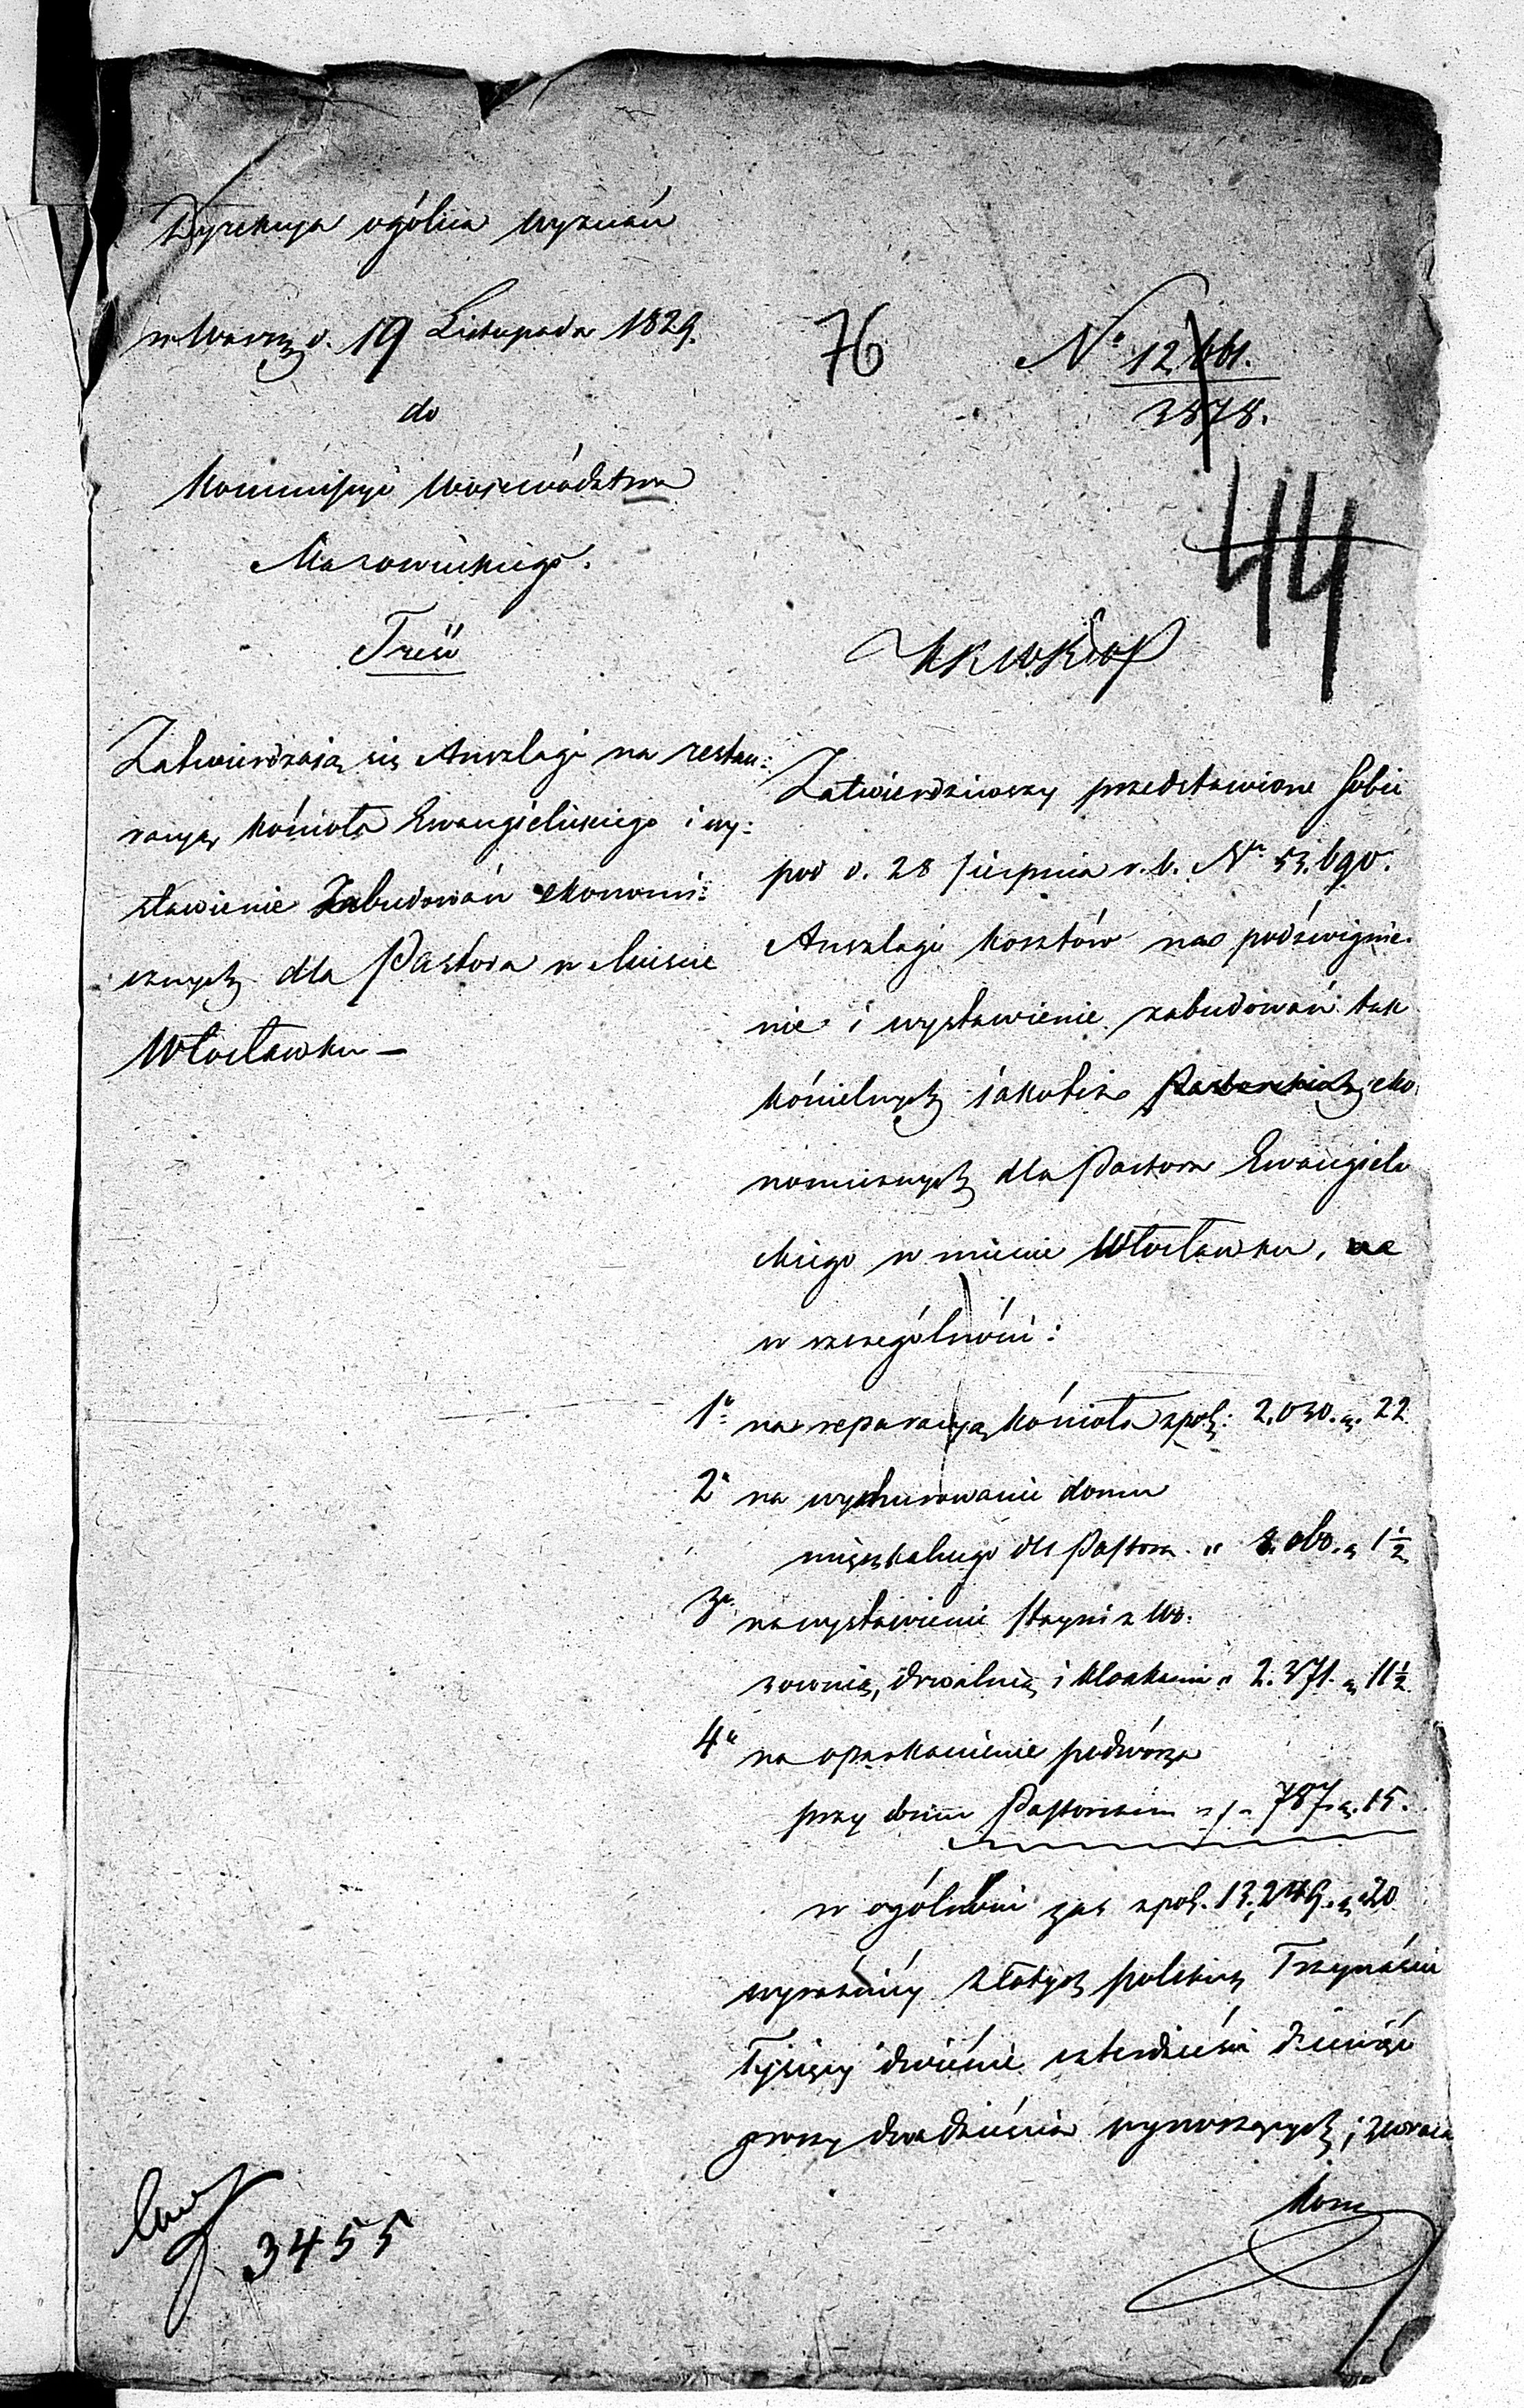 Dyrekcya ogólna wyznań
w Warsz d. 19 Listopada 1829.
76
No 12.661.
3878.
do
Kommissyi Województwa
Mazowieckiego.
44
Treść
Zatwierdzają się Anszlagi na restau:
racyą kościoła Ewangielickiego i wy:
stawienie Zabudowań ekonomi:
cznych dla Pastora w Mieście
Włocławku —
Zatwierdziwszy przedstawione sobie
pod d. 28 Sierpnia r. b. Nr 53.690.
Anszlagi kosztów na podźwignie
nie i wystawienie zabudowań tak
kościelnych jakoteż Pastorskich eko
nomicznych dla Pastora Ewangielic
kiego w mieście Włocławku, na
w szczególności:
1o na reparacyą kościoła zpol: 2.030. g. 22
2o na wymurowanie domu
mieszkalnego dla Pastora " 8.060. g 1½
3o na wystawienie Stayni z wo:
zownią, drwalnią i kloakami " 2.371. g 11½
4o na oparkanienie podwórza
przy domu Pastorskim " 787 g. 15.
w ogólności zaś zpol. 13,249. g 20
wyraźniey Złotych polskich Trzynaście
Tysięcy dwieście czterdzieści dziewięć
groszy dwadzieścia wynoszących; zwraca
Kom
3455